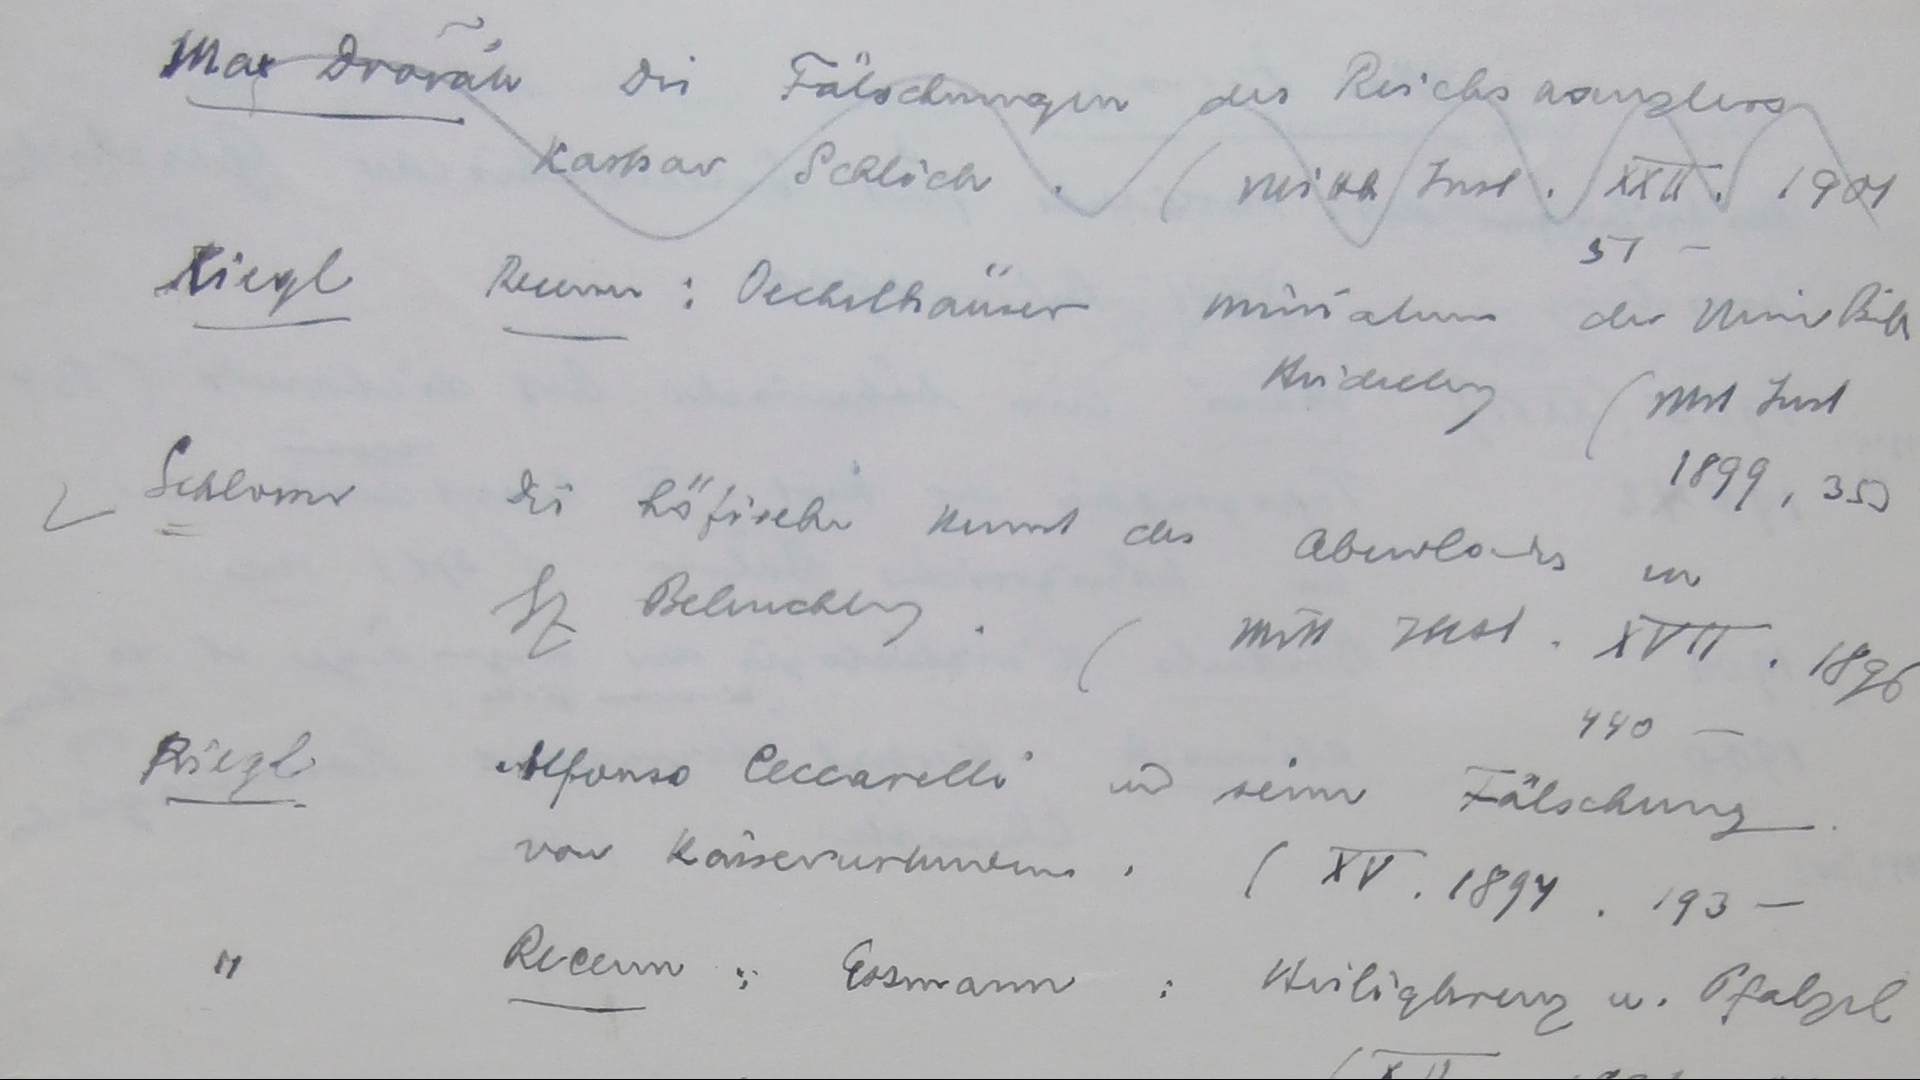 Max Dvořák Die Fälschungen des Reichskanzlers
Kaspar Schlick. (Mitth Inst. XXII. 1901
51 –
Riegl Recens: Oechelhäuser Miniaturen der Univ Bibl
Heidelberg (Mit Inst
1899, 353
Schlosser Die höfische Kunst des Abendlandes in
Beleuchtung. (Mitt Inst. XVII. 1896
440 –
Riegl Alfonso Ceccarelli und seine Fälschung
von Kaiserurkunden. (XV. 1894. 193 –
" Recens: Essmann: Heiligkreuz u. Pfalzel